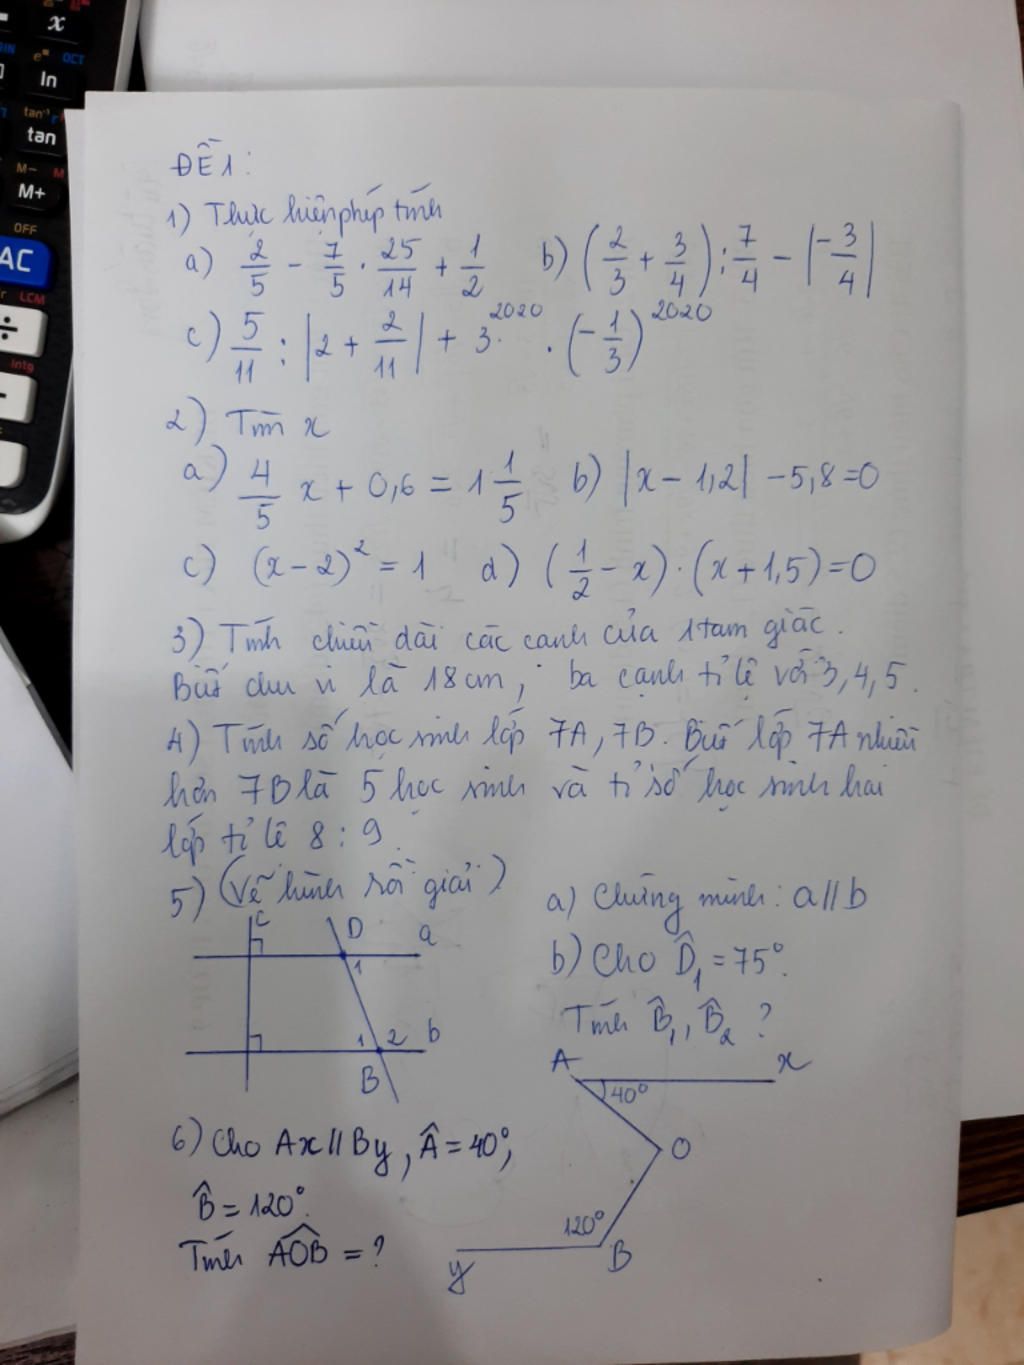 x
OCT
ln
tan⁻¹
tan
M- M
M+
OFF
AC
LCM
÷
Intg
ĐỀ 1:
1) Thực hiện phép tính
a) 2/5 - 7/5 . 25/14 + 1/2 b) (2/3 + 3/4) : 7/4 - |-3/4|
c) 5/11 : |2 + 2/11| + 3^2020 . (-1/3)^2020
2) Tìm x
a) 4/5 x + 0,6 = 1 1/5 b) |x - 1,2| - 5,8 = 0
c) (x - 2)² = 1 d) (1/2 - x) . (x + 1,5) = 0
3) Tính chiều dài các cạnh của 1 tam giác.
Biết chu vi là 18cm, ba cạnh tỉ lệ với 3, 4, 5.
4) Tính số học sinh lớp 7A, 7B. Biết lớp 7A nhiều
hơn 7B là 5 học sinh và tỉ số học sinh hai
lớp tỉ lệ 8 : 9.
5) (Vẽ hình rồi giải)
c D a
1
1 2 b
B
a) Chứng minh: a // b
b) Cho D̂₁ = 75°.
Tính B̂₁, B̂₂ ?
6) Cho Ax // By, Â = 40°,
B̂ = 120°.
Tính AOB̂ = ?
A x
40°
O
120°
y B